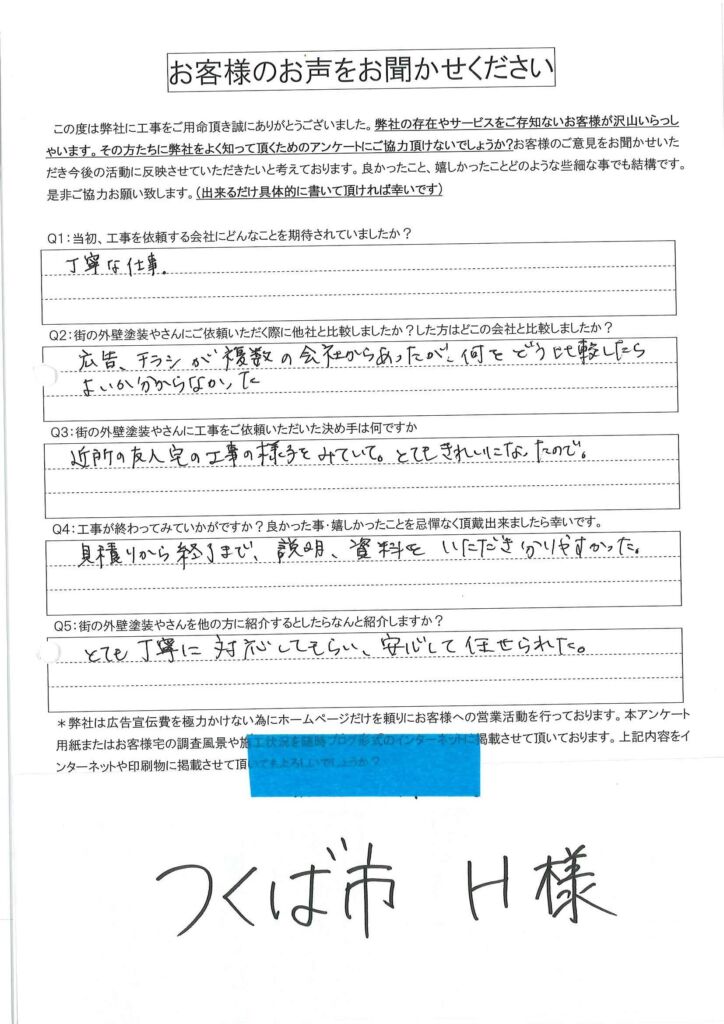 お客様のお声をお聞かせください
この度は弊社に工事をご用命頂き誠にありがとうございました。弊社の存在やサービスをご存知ないお客様が沢山いらっし
ゃいます。その方たちに弊社をよく知って頂くためのアンケートにご協力頂けないでしょうか?お客様のご意見をお聞かせいた
だき今後の活動に反映させていただきたいと考えております。良かったこと、嬉しかったことどのような些細な事でも結構です。
是非ご協力お願い致します。(出来るだけ具体的に書いて頂ければ幸いです)
Q1:当初、工事を依頼する会社にどんなことを期待されていましたか?
丁寧な仕事。
Q2:街の外壁塗装やさんにご依頼いただく際に他社と比較しましたか?した方はどこの会社と比較しましたか?
広告、チラシが複数の会社からあったが、何をどう比較したら
よいか分からなかった
Q3:街の外壁塗装やさんに工事をご依頼いただいた決め手は何ですか
近所の友人宅の工事の様子をみていて。とてもきれいになったので。
Q4:工事が終わってみていかがですか?良かった事・嬉しかったことを忌憚なく頂戴出来ましたら幸いです。
見積りから終了まで、説明、資料をいただき分りやすかった。
Q5:街の外壁塗装やさんを他の方に紹介するとしたらなんと紹介しますか?
とても丁寧に対応してもらい、安心して任せられた。
*弊社は広告宣伝費を極力かけない為にホームページだけを頼りにお客様への営業活動を行っております。本アンケート
用紙またはお客様宅の調査風景や施工状況を随時ブログ形式のインターネットに掲載させて頂いております。上記内容をイ
ンターネットや印刷物に掲載させて頂いても よろしいでしょうか?
つくば市 H様